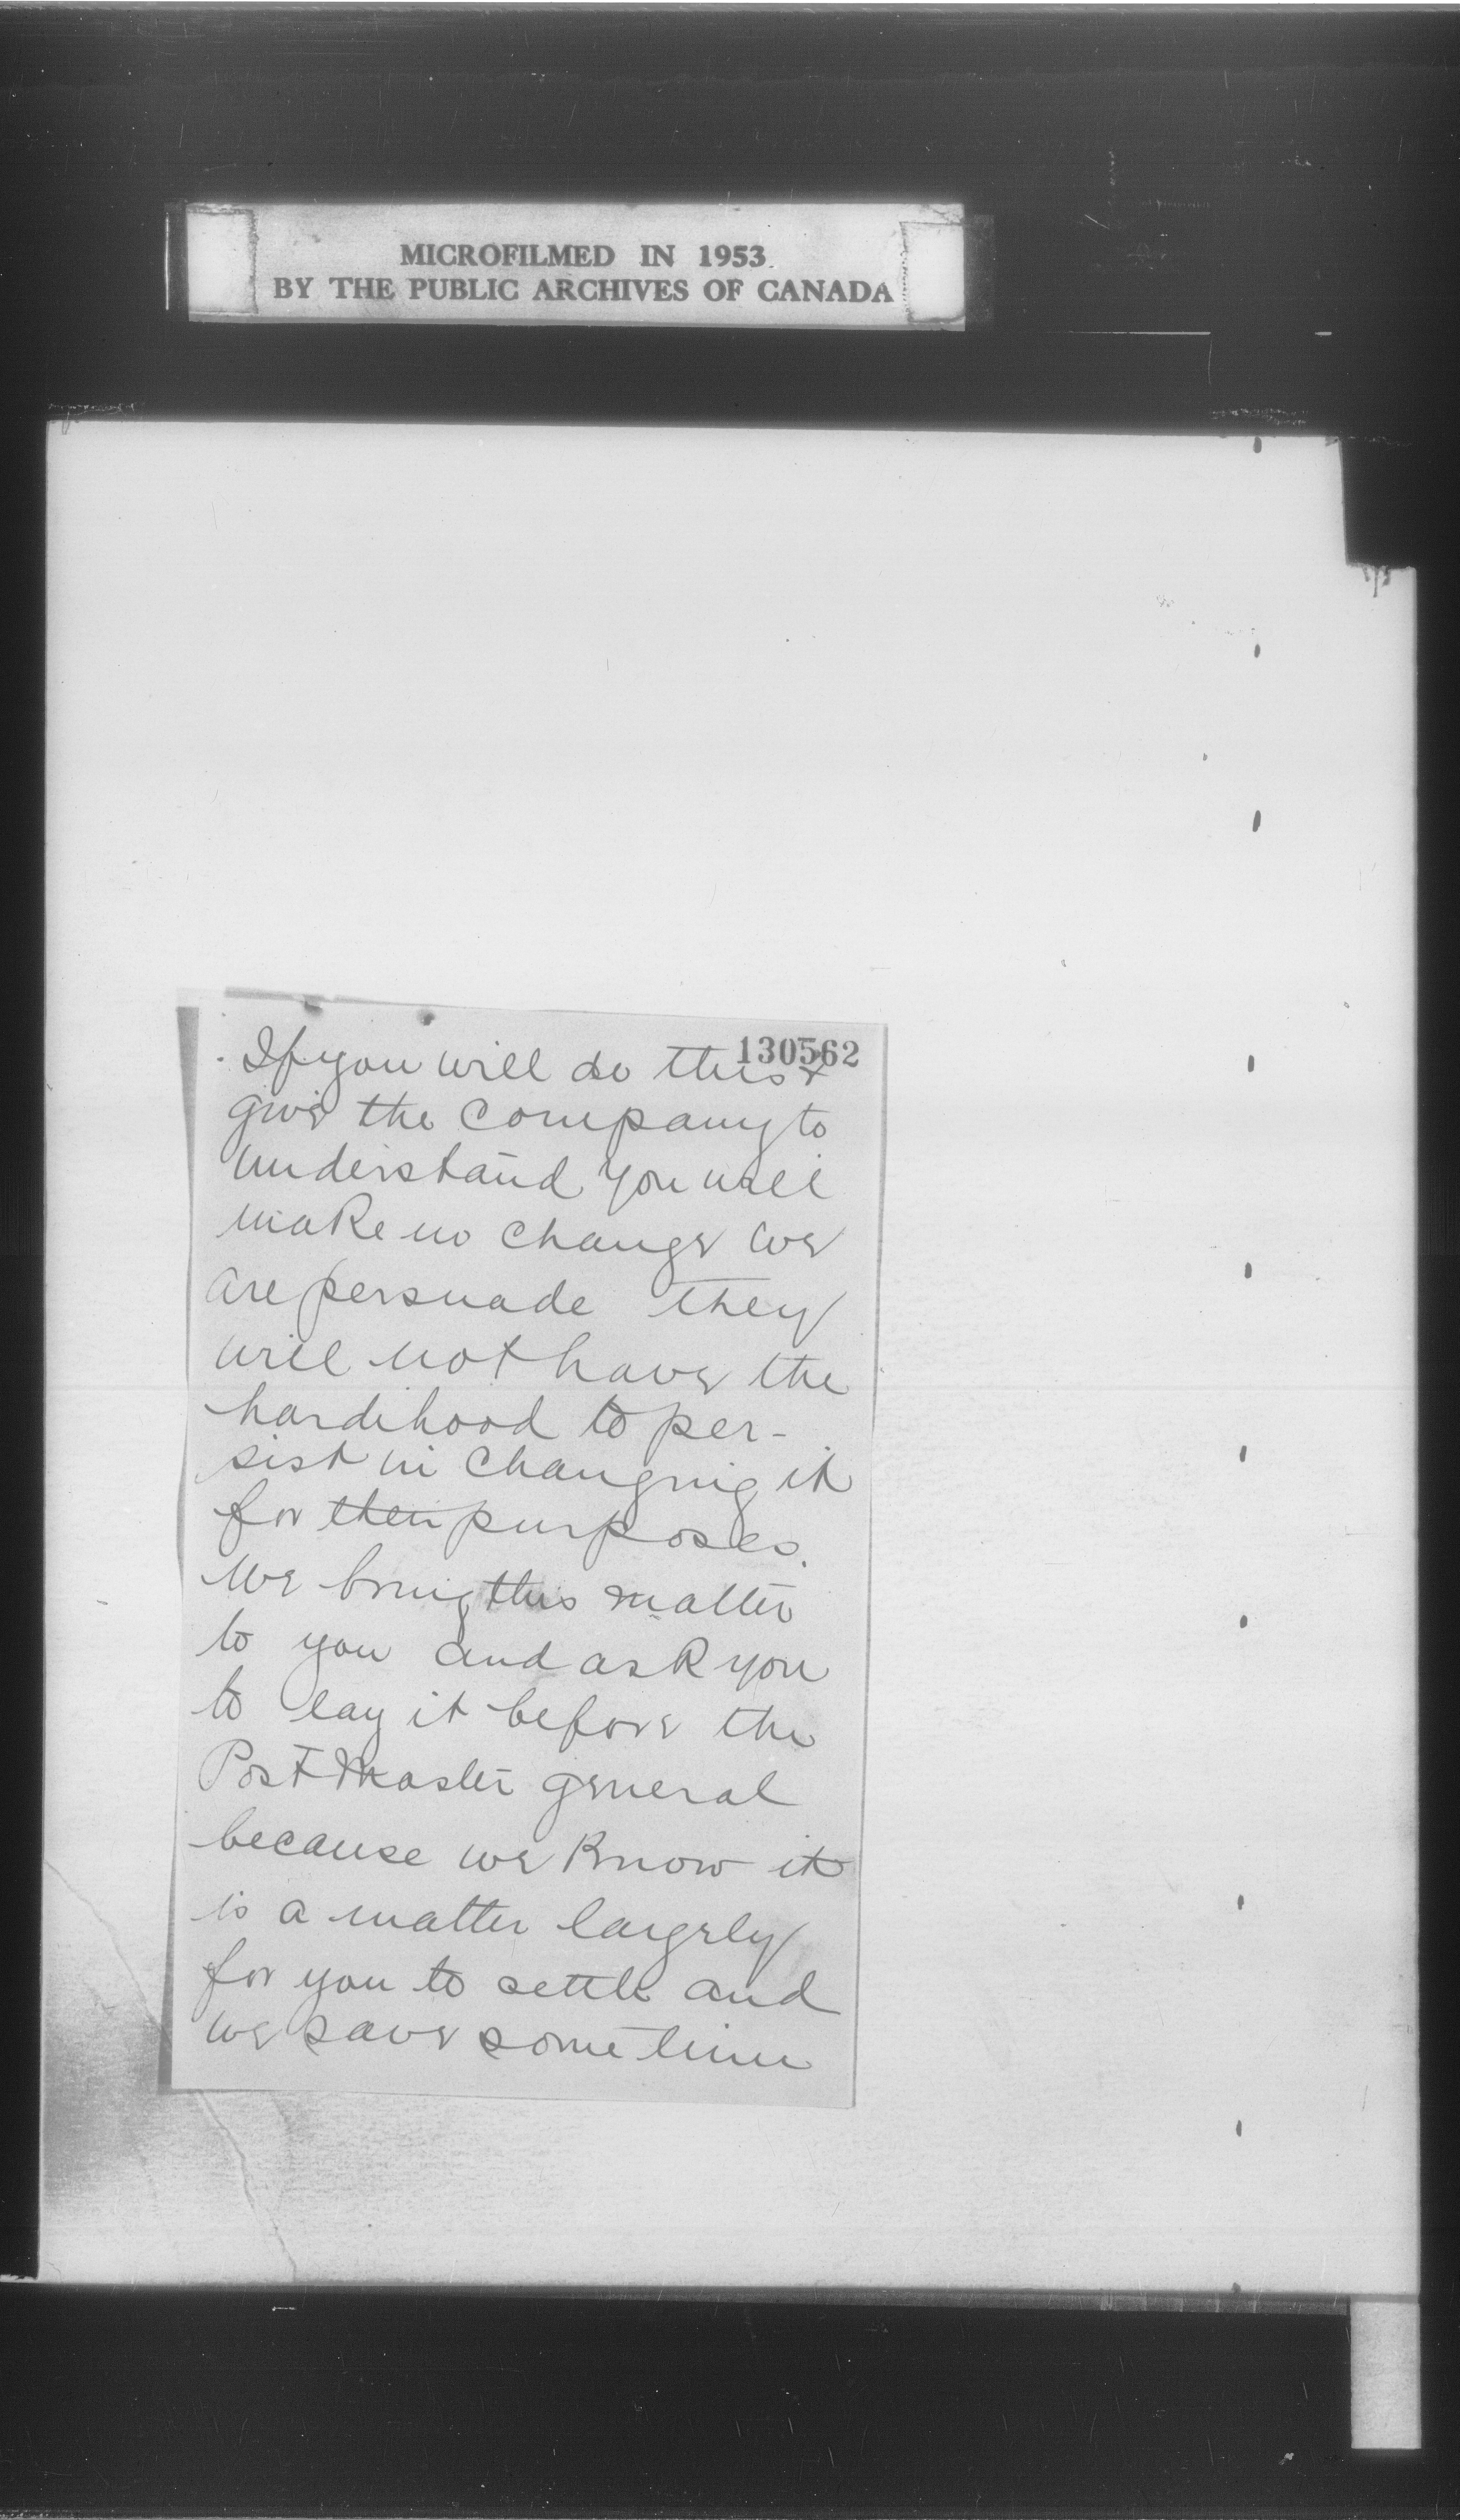 MICROFILMED IN 1953.
BY THE PUBLIC ARCHIVES OF CANADA
130562
If you will do this &
give the Company to
understand you will
make no change we
are persuade they
will not have the
hardihood to per-
sist in changing it
for their purposes.
We bring this matter
to you and ask you
to lay it before the
Post Master general
because we know it
is a matter largely
for you to settle and
we save some time